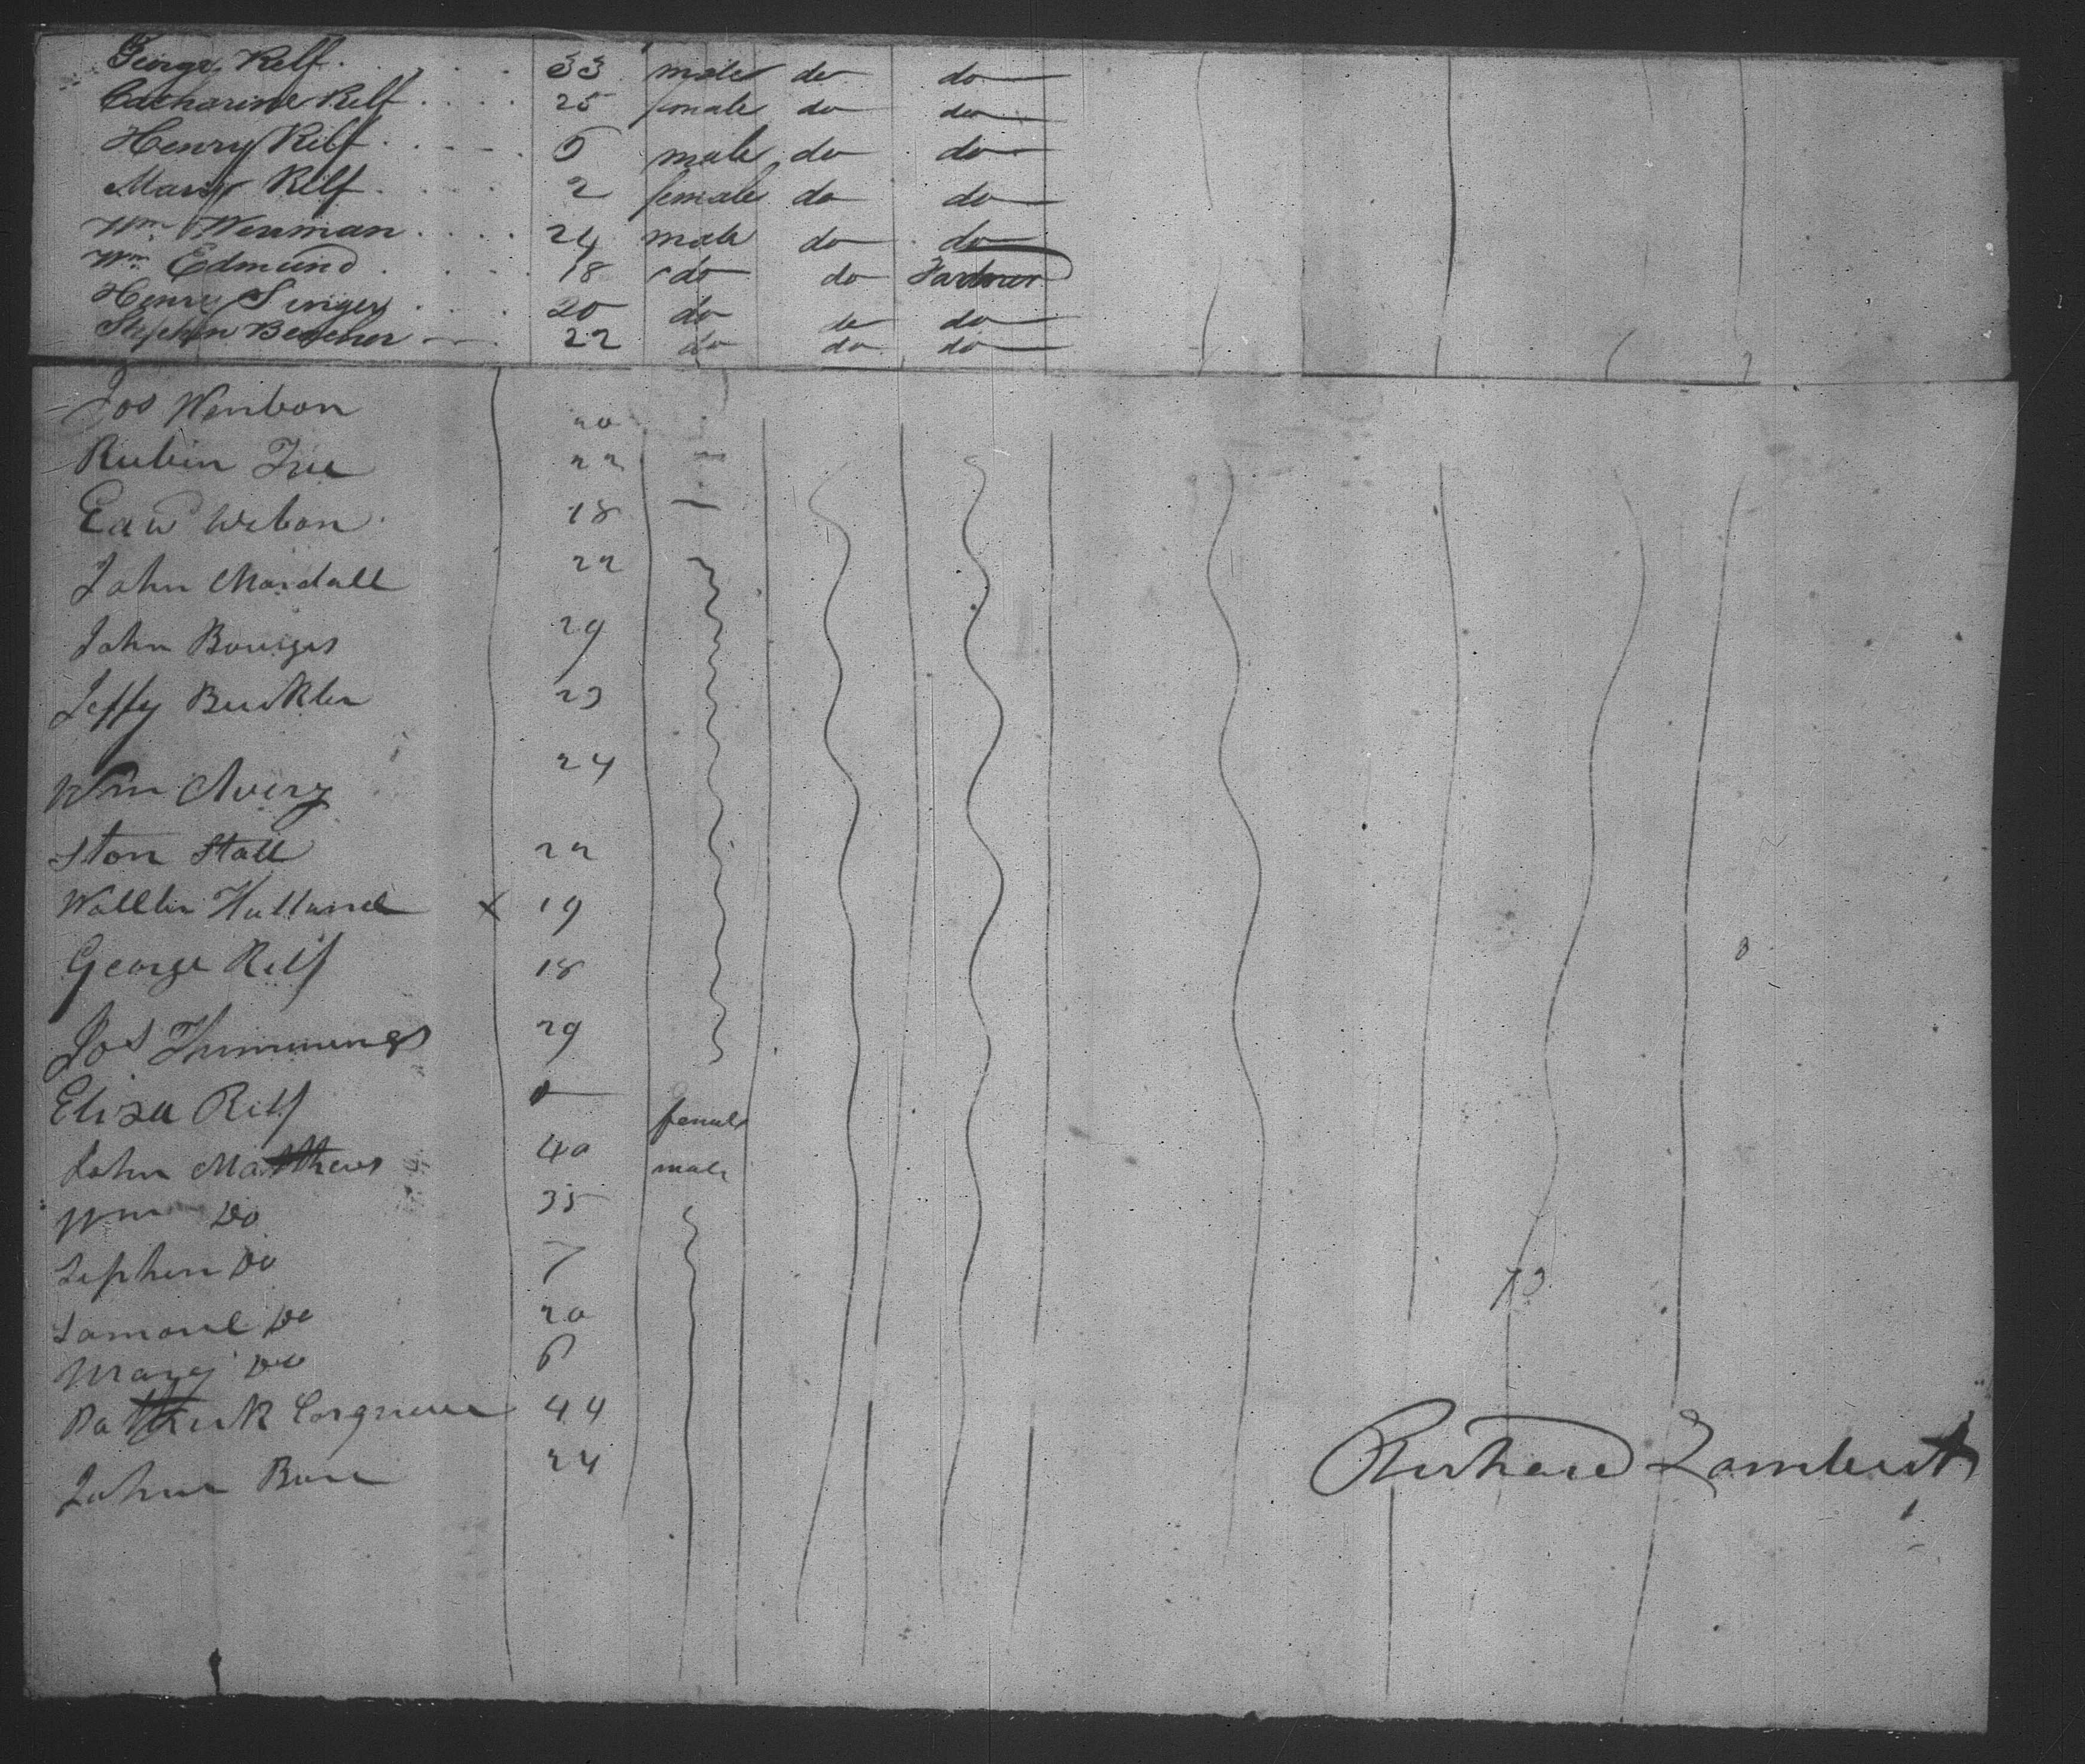 George Relf 33 male do do
Catharine Relf 25 female do do
Henry Relf 5 male do do
Mary Relf 2 female do do
Wm Wenman 24 male do do
Wm Edmund 18 do do Farmer
Henry Singer 20 do do do
Stephen Beecher 22 do do do
Jos Wenbon 20
Rubin 22
Edw Webon 18
John Mardall 22
John 29
Jeffy Buckler 23
Wm Avery 24
Ston Stall 22
X 19
George Relf 18
Jos Thimmings 29
Eliza Relf female
John Matthews 40 male
Wm Do 35
Sephen Do 7
Samouel Do 20
Mary Do 6
73
Pattrick 44
John 24
Richard Lambert